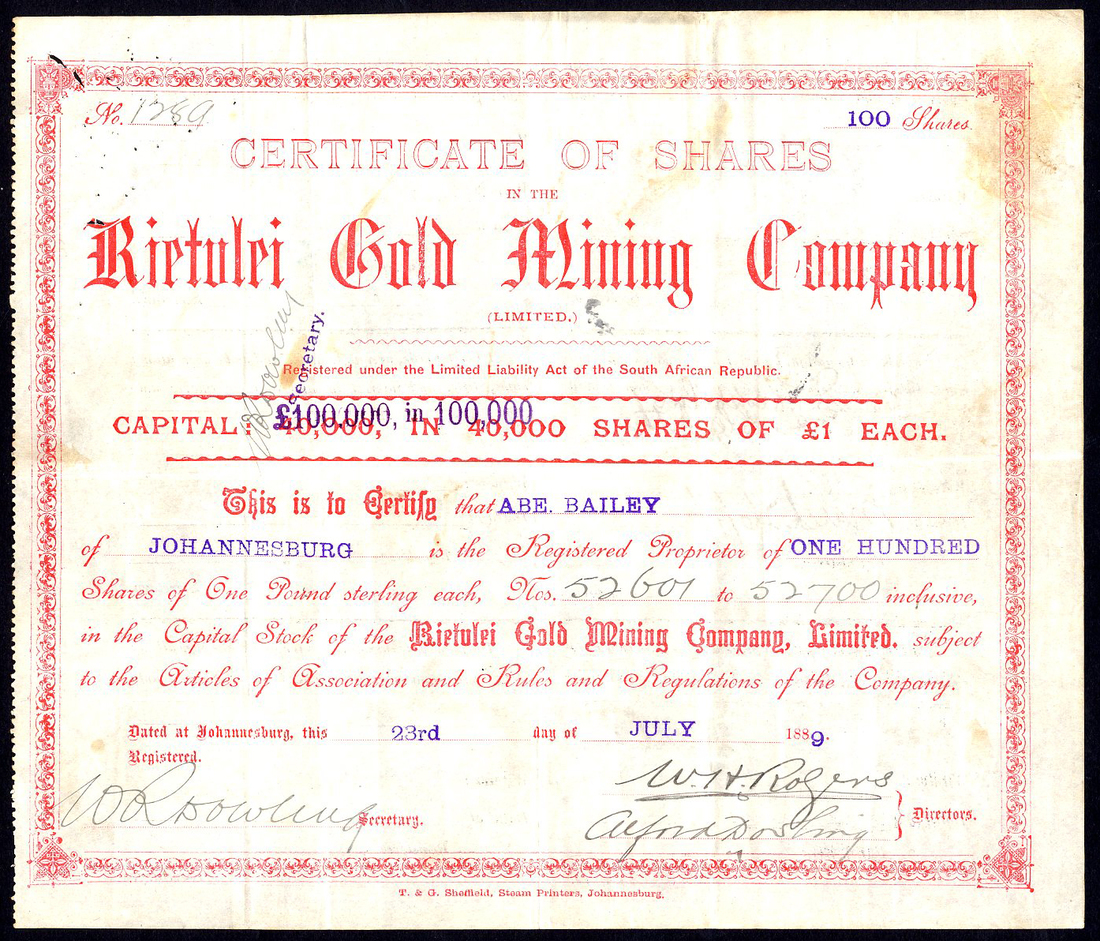 No. 1389
100 Shares.
CERTIFICATE OF SHARES
IN THE
Rietvlei Gold Mining Company
(LIMITED.)
Secretary.
Registered under the Limited Liability Act of the South African Republic.
£100,000, in 100,000
CAPITAL: 40,000, IN 40,000 SHARES OF £1 EACH.
This is to Certify that ABE. BAILEY
of JOHANNESBURG is the Registered Proprietor of ONE HUNDRED
Shares of One Pound sterling each, Nos. 52601 to 52700 inclusive,
in the Capital Stock of the Rietvlei Gold Mining Company, Limited. subject
to the Articles of Association and Rules and Regulations of the Company.
Dated at Johannesburg, this 23rd day of JULY 1889.
Registered.
W. H. Rogers
W R Dowling Secretary.
Alford Dorling Directors.
T. & G. Sheffield, Steam Printers, Johannesburg.